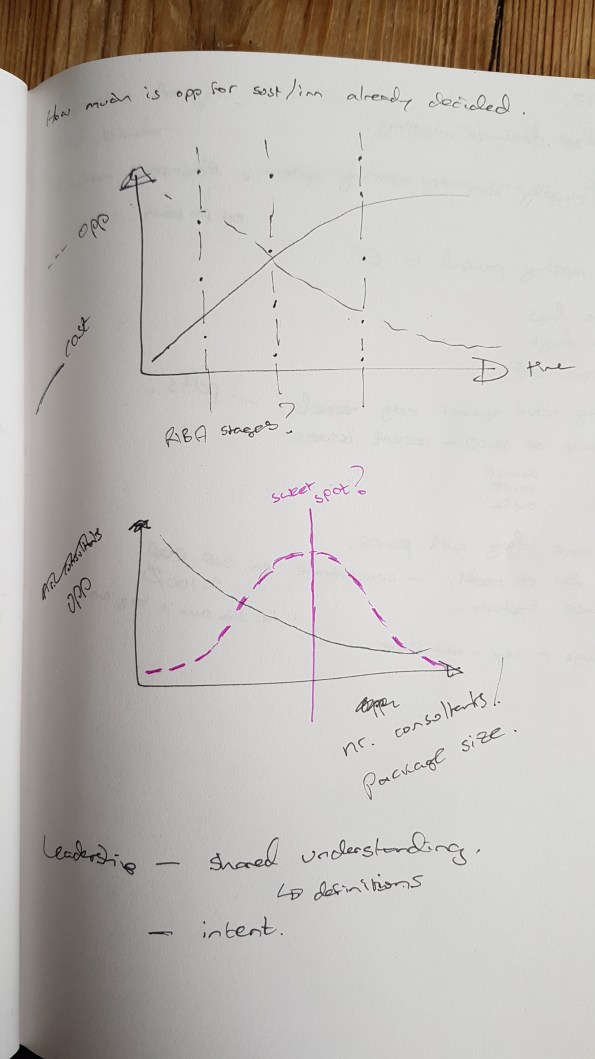 How much is opp for sust/inn already decided.
opp
cost
time
RIBA stages?
sweet spot?
opp
nr. consultants/
package size.
Leadership – shared understanding.
↳ definitions
– intent.